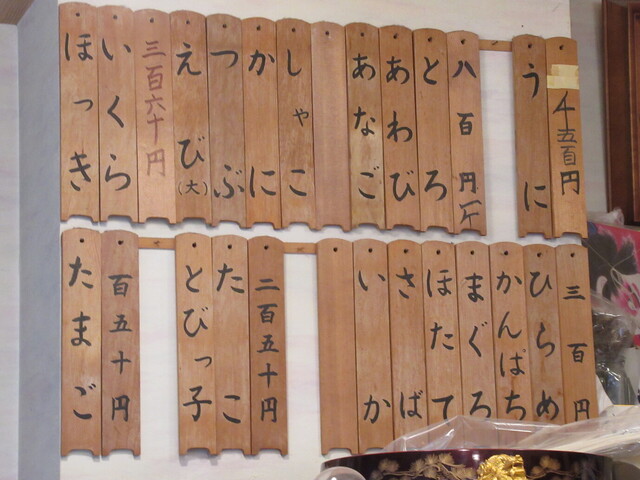 千五百円
うに
八百円
とろ
あわび
あなご
しゃこ
かに
つぶ
えび(大)
三百六十円
いくら
ほっき
三百円
ひらめ
かんはち
まぐろ
ほたて
さば
いか
二百五十円
たこ
とびっ子
百五十円
たまご